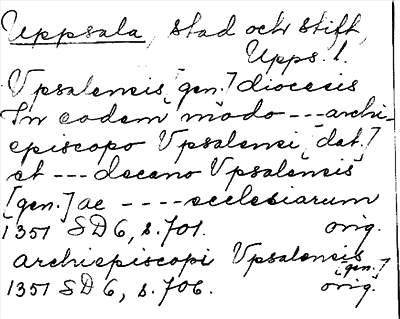 Uppsala, stad och stift,
Upps. l.
Vpsalensis [gen.] diocesis
In eodem modo --- archi-
episcopo Vpsalensi [dat.]
et --- decano Vpsalensis
[gen.] ac ---- ecclesiarum
1351 SD 6, s. 701. orig.
archiepiscopi Vpsalensis
[gen.]
1351 SD 6, s. 706. orig.